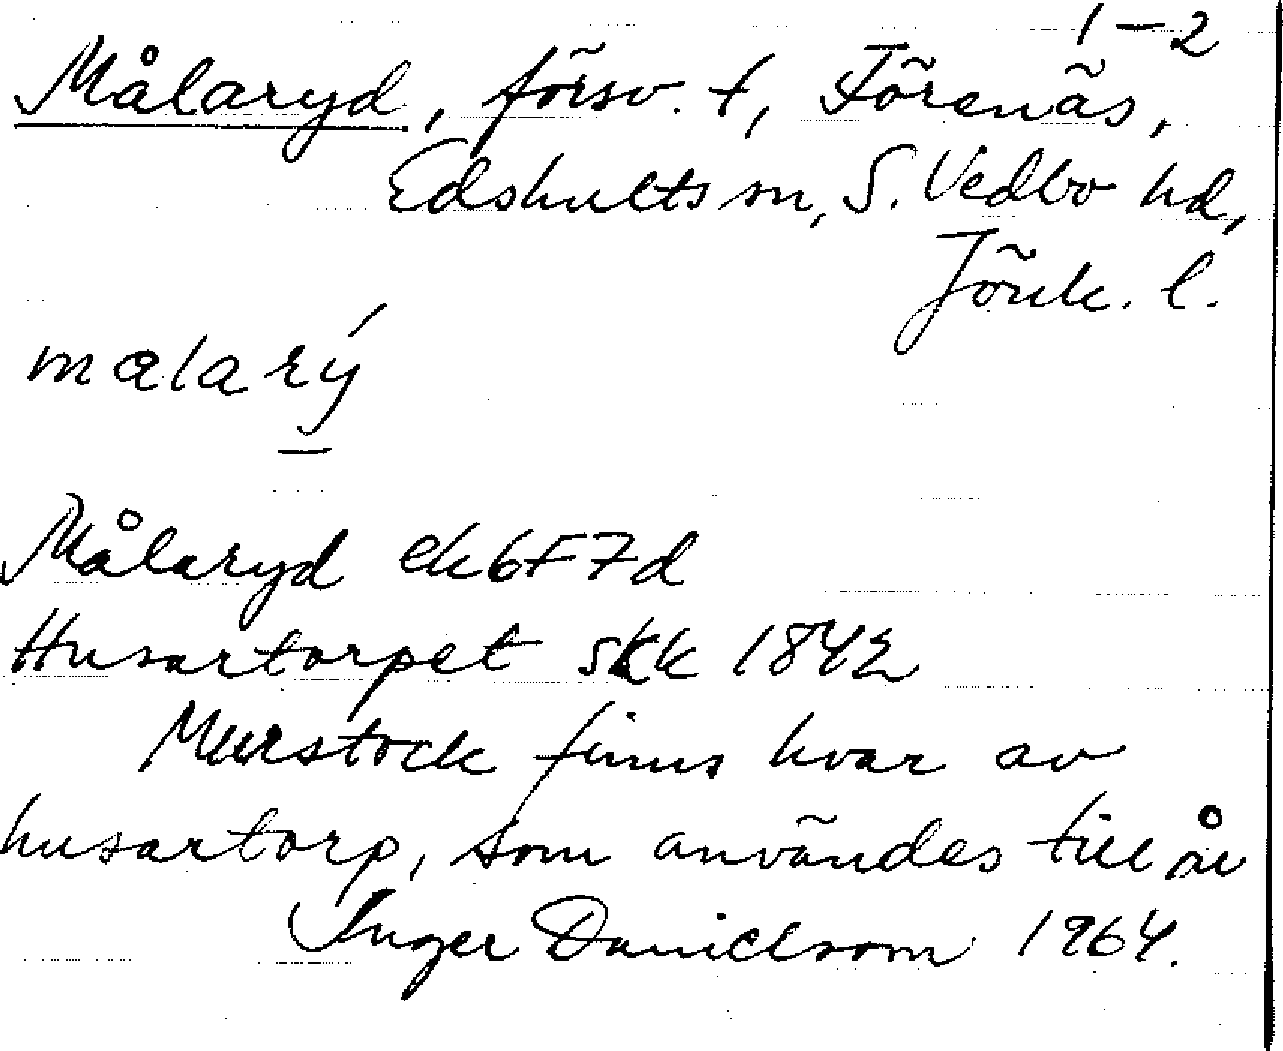 1–2
Målaryd, försv. t, Förenäs,
Edshults sn, S. Vedbo hd,
Jönk. l.
målarý
Målaryd ek6F7d
Husartorpet skk 1842
Murstock finns kvar av
husartorp, som användes till
Inger Danielsson 1964.